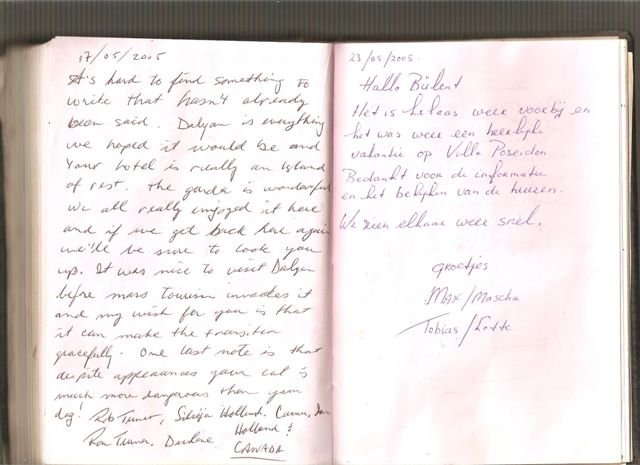 17/05/2005
It's hard to find something to
write that hasn't already
been said. Dalyan is everything
we hoped it would be and
Your hotel is really an island
of rest. The garden is wonderful
we all really enjoyed it here
and if we get back here again
we'll be sure to look you
up. It was nice to visit Dalyan
before mass tourism invades it
and my wish for you is that
it can make the transition
gracefully. One last note is that
despite appearances your cat is
much more dangerous then your
dog! Rob Turner, Holland.
Ron Turner, Holland &
CANADA
23/05/2005.
Hallo Bülent
Het is helaas weer voorbij en
het was weer een heerlijke
vakantie op Villa Poseidon.
Bedankt voor de informatie
en het bekijken van de huizen.
We zien elkaar weer snel.
Groetjes
Max/Mascha
Tobias/Lotte.